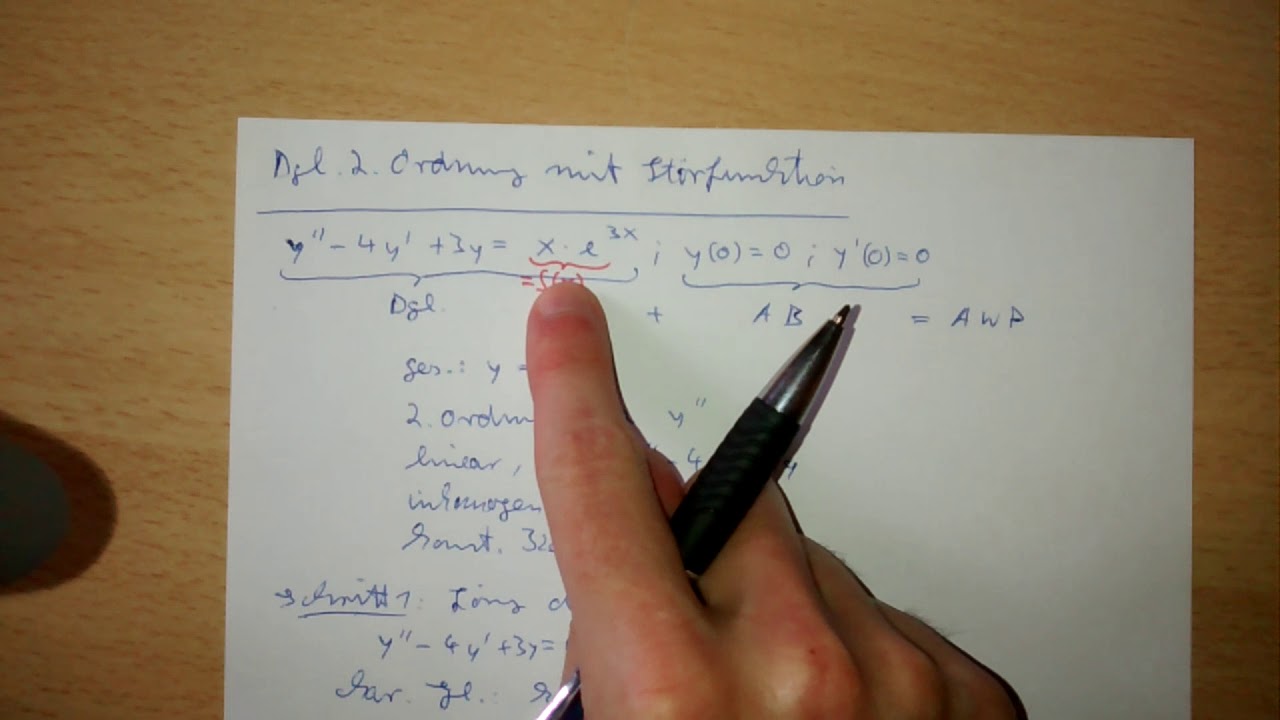 Dgl. 2. Ordnung mit Störfunktion
y'' - 4y' + 3y = x · e^3x ; y(0) = 0 ; y'(0) = 0
Dgl. + AB = AWP
ges.: y =
2. Ordnu y''
linear, 4 y
inhomogen
konst.
Schritt 1: Lösg d
y'' - 4y' + 3y =
Char. Gl.: